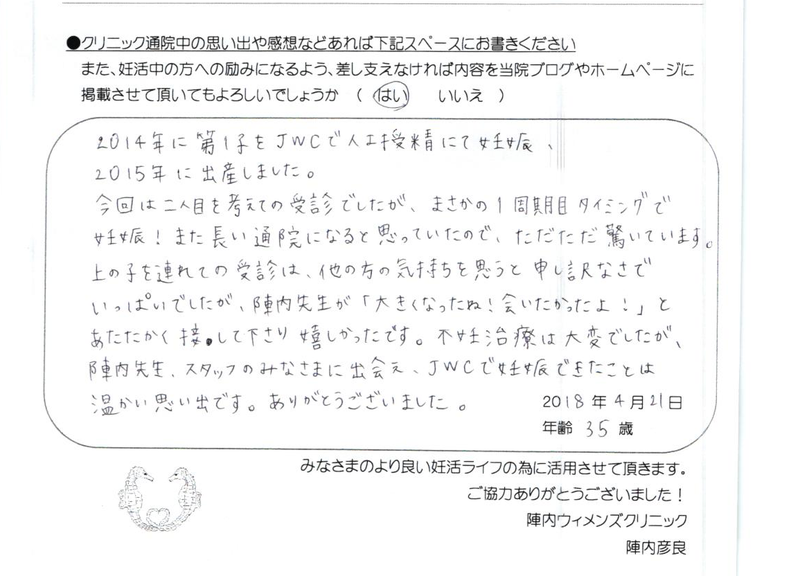 ●クリニック通院中の思い出や感想などあれば下記スペースにお書きください
また、妊活中の方への励みになるよう、差し支えなければ内容を当院ブログやホームページに
掲載させて頂いてもよろしいでしょうか （ はい　いいえ ）
2014年に第1子をJWCで人工授精にて妊娠、
2015年に出産しました。
今回は二人目を考えての受診でしたが、まさかの1周期目タイミングで
妊娠！また長い通院になると思っていたので、ただただ驚いています。
上の子を連れての受診は、他の方の気持ちを思うと申し訳なさで
いっぱいでしたが、陣内先生が「大きくなったね！会いたかったよ！」と
あたたかく接して下さり嬉しかったです。不妊治療は大変でしたが、
陣内先生、スタッフのみなさまに出会え、JWCで妊娠できたことは
温かい思い出です。ありがとうございました。
2018年4月21日
年齢 35 歳
みなさまのより良い妊活ライフの為に活用させて頂きます。
ご協力ありがとうございました！
陣内ウィメンズクリニック
陣内彦良